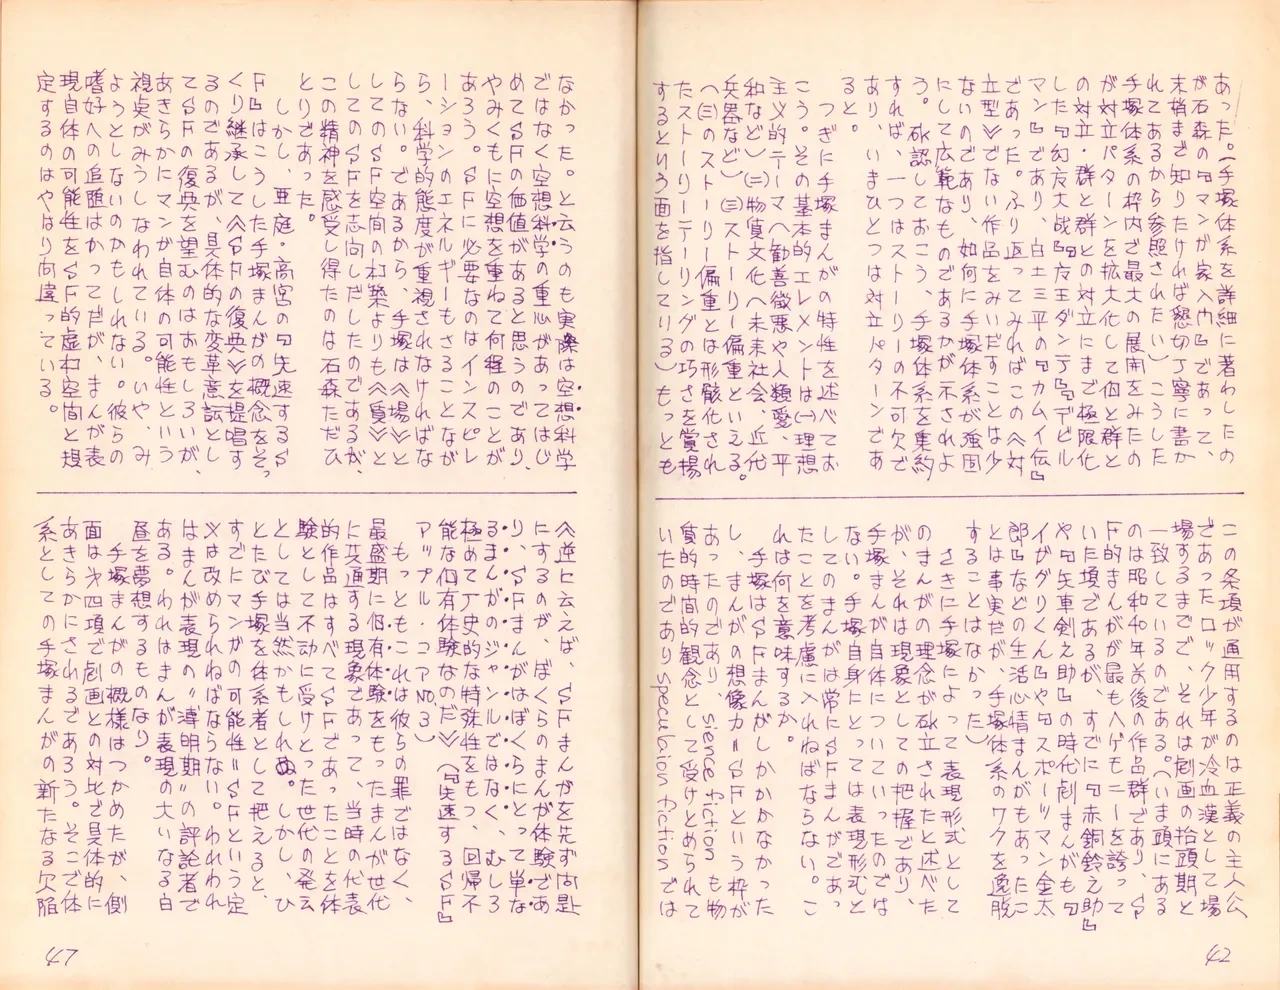 あった。(手塚体系を詳細に著わしたの
が石森の『マンガ家入門』であって、
末梢まで知りたければ懇切丁寧に書か
れてあるから参照されたい)こうした
手塚体系の枠内で最大の展開をみたの
が対立パターンを拡大化して個と群と
の対立・群と群との対立にまで極限化
した『幻魔大戦』『魔王ダンテ』『デビル
マン』であり、白土三平の『カムイ伝』
であった。ふり返ってみればこの〈対
立型〉でない作品をみいだすことは少
ないのであり、如何に手塚体系が強固
にして広範なものであるかが示されよ
う。確認しておこう、手塚体系を集約
すれば、一つはストーリーの不可欠で
あり、いまひとつは対立パターンであ
ると。
つぎに手塚まんがの特性を述べてお
こう。その基本的エレメントは(一)理想
主義的テーマ〈勧善徴悪や人類愛、平
和など〉(二)物質文化〈未来社会、近代
兵器など〉(三)ストーリー偏重といえる。
〈(三)のストーリー偏重とは形骸化され
たストーリーテーリングの巧さを賞揚
するという面を指している〉もっとも
この条項が通用するのは正義の主人公
であったロック少年が冷血漢として場
場するまでで、それは劇画の抬頭期と
一致しているのである。〈いま頭にある
のは昭和卅年前後の作品群であり、S
F的まんがが最もヘゲモニーを誇って
いた頃であるが、すでに『赤銅鈴之助』
や『矢車剣之助』の時代劇まんがも『
イガグリくん』や『スポーツマン金太
郎』などの生活心情まんがもあったこ
とは事実だが、手塚体系のワクを逸脱
することはなかった〉
さきに手塚によって表現形式として
のまんがの理念が確立されたと述べた
が、それは現象としての把握であり、
手塚まんが自体についていったのでは
ない。手塚自身にとっては表現形式と
してのまんがは常にSFまんがであっ
たことを考慮に入れねばならない。こ
れは何を意味するか。
手塚はSFまんがしかかかなかった
し、まんがの想像力=SFという枠が
あったのであり、sience fiction も物
質的時間的観念として受けとめられて
いたのであり speculation fiction では
なかった。と云うのも実際は空想科学
ではなく空想科学の重心があってはじ
めてSFの価値があると思うのであり、
やみくもに空想を重ねて何程のことが
あろう。SFに必要なのはインスピレ
ーションのエネルギーもさることなが
ら、科学的態度が重視されなければな
らない。であるから、手塚は〈場〉と
してのSF空間の構築よりも〈質〉と
してのSFを志向しだしたのであるが、
この精神を感受し得たのは石森ただひ
とりであった。
しかし、亜庭・高宮の『失速するS
F』はこうした手塚まんがの概念をそっ
くり継承して〈SFの復興〉を提唱す
るのであるが、具体的な変革意識とし
てSFの復興を望むのはおもしろいが、
あきらかにマンガ自体の可能性という
視点がみうしなわれている。いや、み
ようとしないのかもしれない。彼らの
嗜好への追随はかってだが、まんが表
現自体の可能性をSF的虚構空間と規
定するのはやはり間違っている。
〈逆に云えば、SFまんがを先ず問題
にするのが、ぼくらのまんが体験であ
り、SFまんがはぼくらにとって単な
るまんがのジャンルではなく、むしろ
極めて歴史的な特殊性をもつ、回帰不
能な個有体験なのだ〉(『失速するSF』
アップル・コアNO.3)
もっともこれは彼らの罪ではなく、
最盛期に個有体験をもったまんが世代
に共通する現象であって、当時の代表
的作品はすべてSFであったことを体
験として不動に受けとった世代の発言
としては当然かもしれぬ。しかし、ひ
とたび手塚を体系者として把えると、
すでにマンガの可能性=SFという定
義は改められねばならない。われわれ
はまんが表現の“薄明期”の評論者で
ある。われはまんが表現の大いなる白
昼を夢想するものなり。
手塚まんがの概様はつかめたが、側
面は第四項で劇画との対比で具体的に
あきらかにされるであろう。そこで体
系としての手塚まんがの新たなる欠陥
42
47